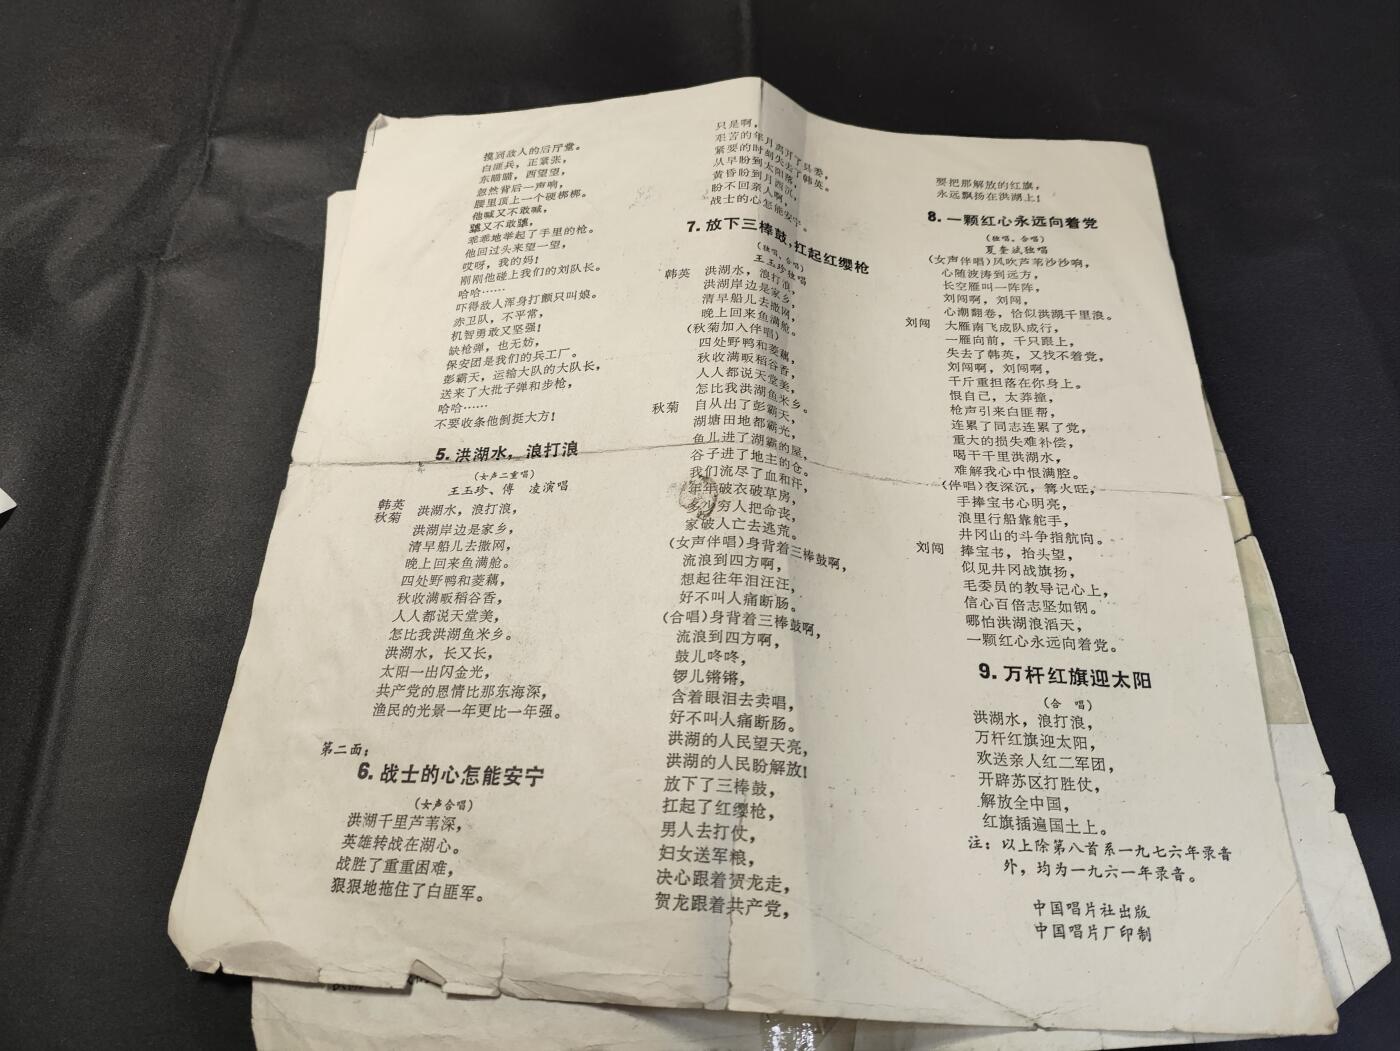 摸到敌人的后厅堂。
白匪兵，正紧张，
东瞄瞄，西望望，
忽然背后一声响，
腰里顶上一个硬梆梆。
他喊又不敢喊，
又不敢
乖乖地举起了手里的枪。
他回过头来望一望，
哎呀，我的妈！
刚刚他碰上我们的刘队长。
哈哈……
吓得敌人浑身打颤只叫娘。
赤卫队，不平常，
机智勇敢又坚强！
缺枪弹，也无妨，
保安团是我们的兵工厂。
彭霸天，运输大队的大队长，
送来了大批子弹和步枪，
哈哈……
不要收条他倒挺大方！
5. 洪湖水，浪打浪
（女声二重唱）
王玉珍、傅　凌演唱
韩英
秋菊　洪湖水，浪打浪，
洪湖岸边是家乡，
清早船儿去撒网，
晚上回来鱼满舱。
四处野鸭和菱藕，
秋收满畈稻谷香，
人人都说天堂美，
怎比我洪湖鱼米乡。
洪湖水，长又长，
太阳一出闪金光，
共产党的恩情比那东海深，
渔民的光景一年更比一年强。
第二面：
6. 战士的心怎能安宁
（女声合唱）
洪湖千里芦苇深，
英雄转战在湖心。
战胜了重重困难，
狠狠地拖住了白匪军。
只是啊，
艰苦的年月离开了县委，
紧要的时刻失去了韩英。
从早盼到太阳落，
黄昏盼到月西沉，
盼不回亲人啊，
战士的心怎能安宁。
7. 放下三棒鼓，扛起红缨枪
（独唱、合唱）
王玉珍独唱
韩英　洪湖水，浪打浪，
洪湖岸边是家乡，
清早船儿去撒网，
晚上回来鱼满舱。
（秋菊加入伴唱）
四处野鸭和菱藕，
秋收满畈稻谷香，
人人都说天堂美，
怎比我洪湖鱼米乡。
秋菊　自从出了彭霸天，
湖塘田地都霸光，
鱼儿进了湖霸的屋，
谷子进了地主的仓。
我们流尽了血和汗，
年年破衣破草房，
多少穷人把命丧，
家破人亡去逃荒。
（女声伴唱）身背着三棒鼓啊，
流浪到四方啊，
想起往年泪汪汪，
好不叫人痛断肠。
（合唱）身背着三棒鼓啊，
流浪到四方啊，
鼓儿咚咚，
锣儿锵锵，
含着眼泪去卖唱，
好不叫人痛断肠。
洪湖的人民望天亮，
洪湖的人民盼解放！
放下了三棒鼓，
扛起了红缨枪，
男人去打仗，
妇女送军粮，
决心跟着贺龙走，
贺龙跟着共产党，
要把那解放的红旗，
永远飘扬在洪湖上！
8. 一颗红心永远向着党
（独唱、合唱）
夏奎斌独唱
（女声伴唱）风吹芦苇沙沙响，
心随波涛到远方，
长空雁叫一阵阵，
刘闯啊，刘闯，
心潮翻卷，恰似洪湖千里浪。
刘闯　大雁南飞成队成行，
一雁向前，千只跟上，
失去了韩英，又找不着党，
刘闯啊，刘闯啊，
千斤重担落在你身上。
恨自己，太莽撞，
枪声引来白匪帮，
连累了同志连累了党，
重大的损失难补偿，
喝干千里洪湖水，
难解我心中恨满腔。
（伴唱）夜深沉，篝火旺，
手捧宝书心明亮，
浪里行船靠舵手，
井冈山的斗争指航向。
刘闯　捧宝书，抬头望，
似见井冈战旗扬，
毛委员的教导记心上，
信心百倍志坚如钢。
哪怕洪湖浪滔天，
一颗红心永远向着党。
9. 万杆红旗迎太阳
（合　唱）
洪湖水，浪打浪，
万杆红旗迎太阳，
欢送亲人红二军团，
开辟苏区打胜仗，
解放全中国，
红旗插遍国土上。
注：以上除第八首系一九七六年录音
外，均为一九六一年录音。
中国唱片社出版
中国唱片厂印制